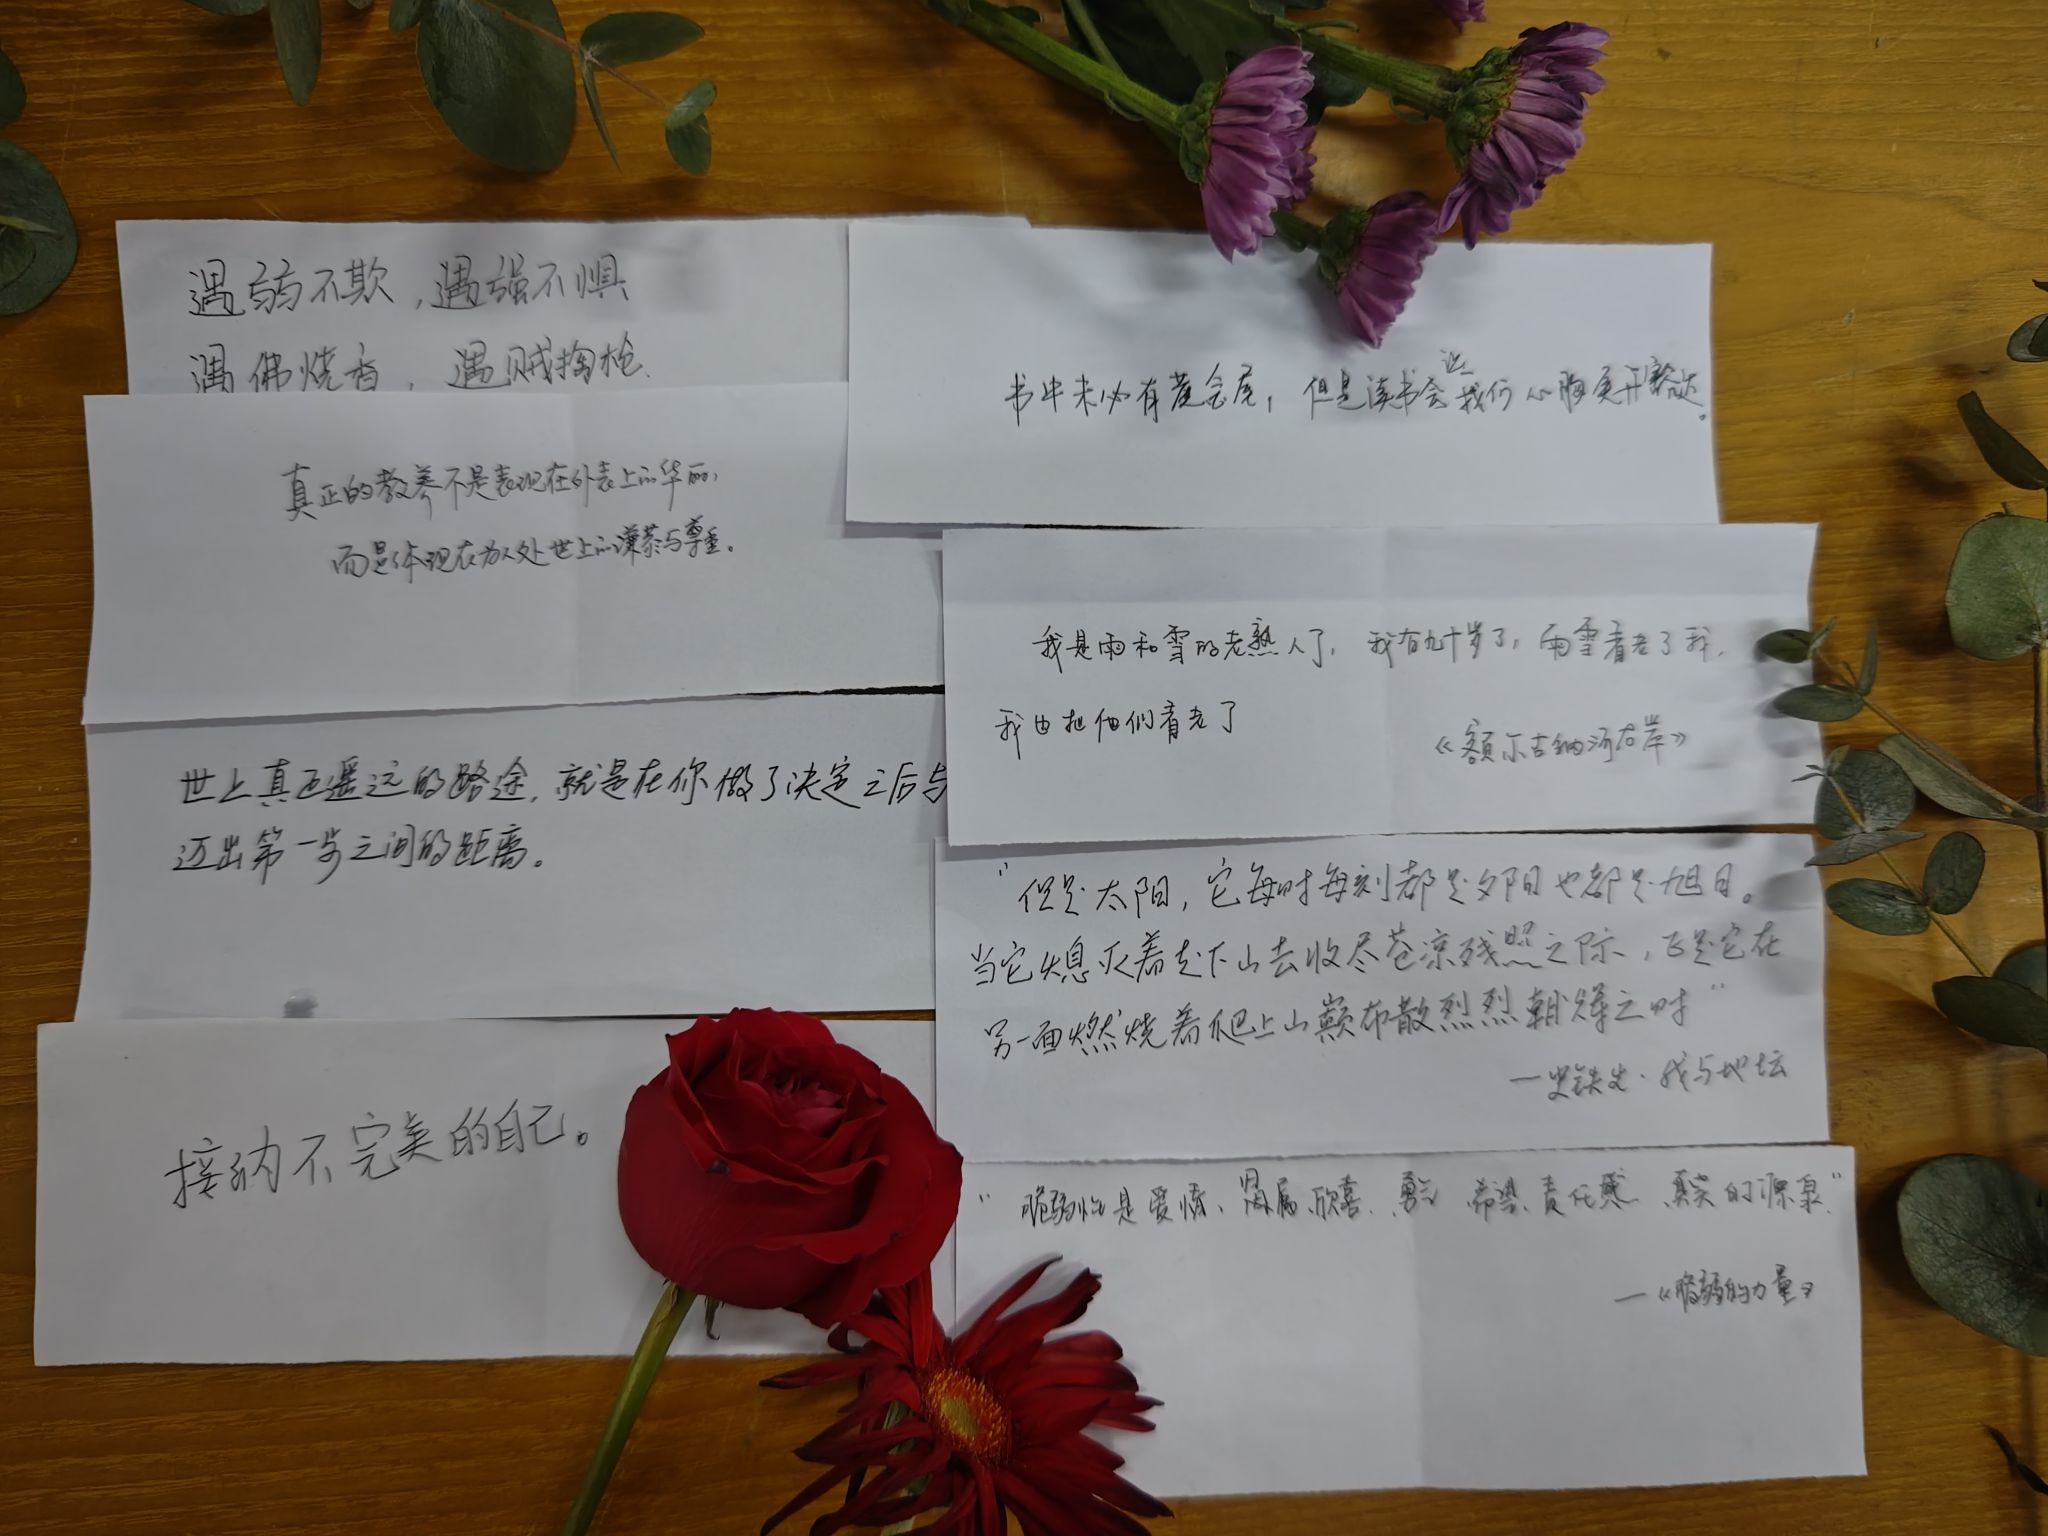 遇弱不欺，遇强不惧
遇佛烧香，遇贼掏枪.
真正的教养不是表现在外表上的华丽，
而是体现在为人处世上的谦恭与尊重。
世上真正遥远的路途，就是在你做了决定之后与
迈出第一步之间的距离。
接纳不完美的自己。
书中未必有黄金屋，但是读书会让我们心胸更开豁达。
我是雨和雪的老熟人了，我有九十岁了，雨雪看老了我，
我也把他们看老了
《额尔古纳河右岸》
“但是太阳，它每时每刻都是夕阳也都是旭日。
当它熄灭着走下山去收尽苍凉残照之际，正是它在
另一面燃烧着爬上山巅布散烈烈朝辉之时”
—史铁生·我与地坛
“脆弱性是爱情、归属、欣喜、勇气、希望、责任感、真实的源泉”
—《脆弱的力量》